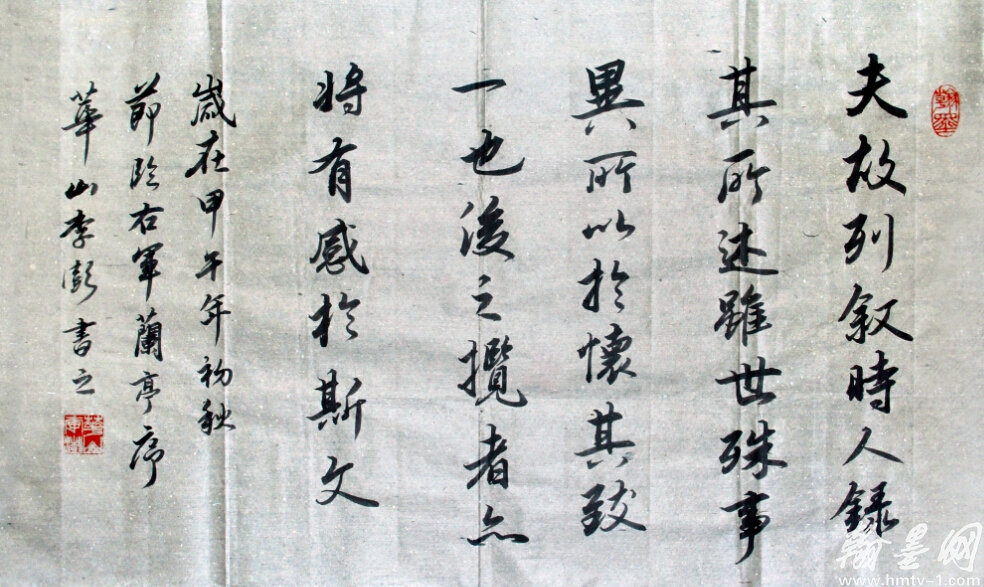 夫故列叙時人録
其所述雖世殊事
異所以於懷其致
一也後之攬者亦
将有感於斯文
歲在甲午年初秋
節臨右軍蘭亭序
華山李彭書之
翰墨网
www.hmtv-1.com